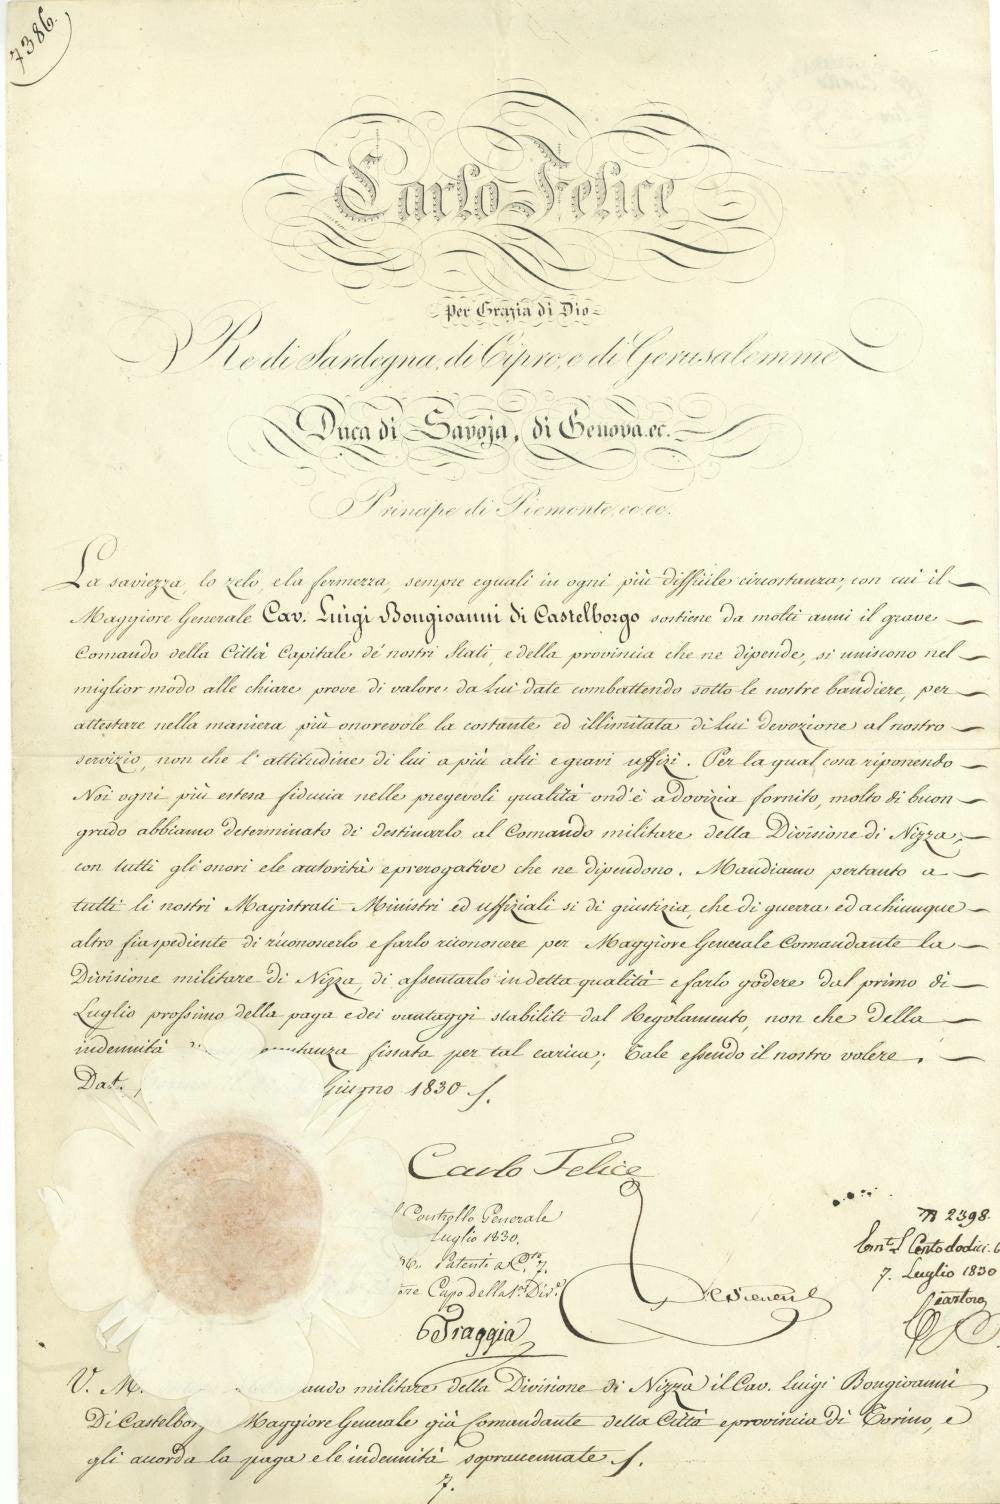 7386.
Carlo Felice
per Grazia di Dio
Re di Sardegna, di Cipro, e di Gerusalemme
Duca di Savoja, di Genova. ec.
Principe di Piemonte, ec. ec.
La saviezza, lo zelo, e la fermezza, sempre eguali in ogni più difficile circostanza, con cui il
Maggiore Generale Cav. Luigi Bongioanni di Castelborgo sostiene da molti anni il grave
Comando della Città Capitale de' nostri Stati, e della provincia che ne dipende, si uniscono nel
miglior modo alle chiare prove di valore da Lui date combattendo sotto le nostre bandiere, per
attestare nella maniera più onorevole la costante ed illimitata di Lui devozione al nostro
servizio, non che l'attitudine di lui a più alti e gravi uffizi. Per la qual cosa riponendo
Noi ogni più estesa fiducia nelle pregevoli qualità ond'è a dovizia fornito, molto di buon
grado abbiamo determinato di destinarlo al Comando militare della Divisione di Nizza;
con tutti gli onori e le autorità e prerogative che ne dipendono. Mandiamo pertanto a
tutti li nostri Magistrati Ministri ed uffiziali si di giustizia, che di guerra ed a chiunque
altro fia spediente di riconoscerlo e farlo riconoscere per Maggiore Generale Comandante la
Divisione militare di Nizza, di assentarlo in detta qualità e farlo godere dal primo di
Luglio prossimo della paga e dei vantaggi stabiliti dal Regolamento, non che della
indennità fissata per tal carica; Tale essendo il nostro volere.
Dat. Giugno 1830
Carlo Felice
Controllo Generale
Luglio 1830.
Patenti a C.te 7.
Capo della 1.a Div.e
Traggia
N 2398.
Cento dodici
7. Luglio 1830
V. M. ando militare della Divisione di Nizza il Cav. Luigi Bongioanni
Di Castelborg Maggiore Generale già Comandante della Città e provincia di Torino, e
gli accorda la paga e le indennità sopraccennate
7.